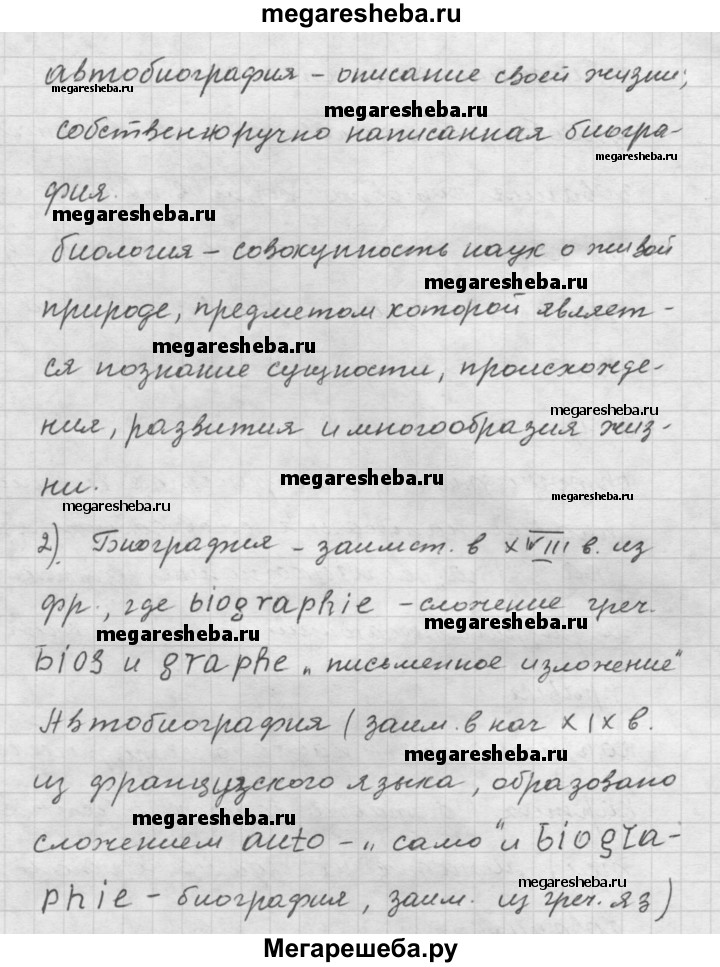 megaresheba.ru
автобиография – описание своей жизни;
megaresheba.ru
megaresheba.ru
собственноручно написанная биогра-
megaresheba.ru
фия.
megaresheba.ru
биология – совокупность наук о живой
megaresheba.ru
природе, предметом которой являет-
megaresheba.ru
ся познание сущности, происхожде-
megaresheba.ru
ния, развития и многообразия жиз-
megaresheba.ru
ни.
megaresheba.ru
2). Биография – заимст. в XVIII в. из
megaresheba.ru
фр., где biographie – сложение греч.
megaresheba.ru
megaresheba.ru
bios и graphe „письменное изложение“
Автобиография (заим. в нач XIX в.
megaresheba.ru
из французского языка, образовано
megaresheba.ru
сложением auto – „само“ и biogra-
megaresheba.ru
phie – биография, заим. из греч. яз)
Мегарешеба.ру